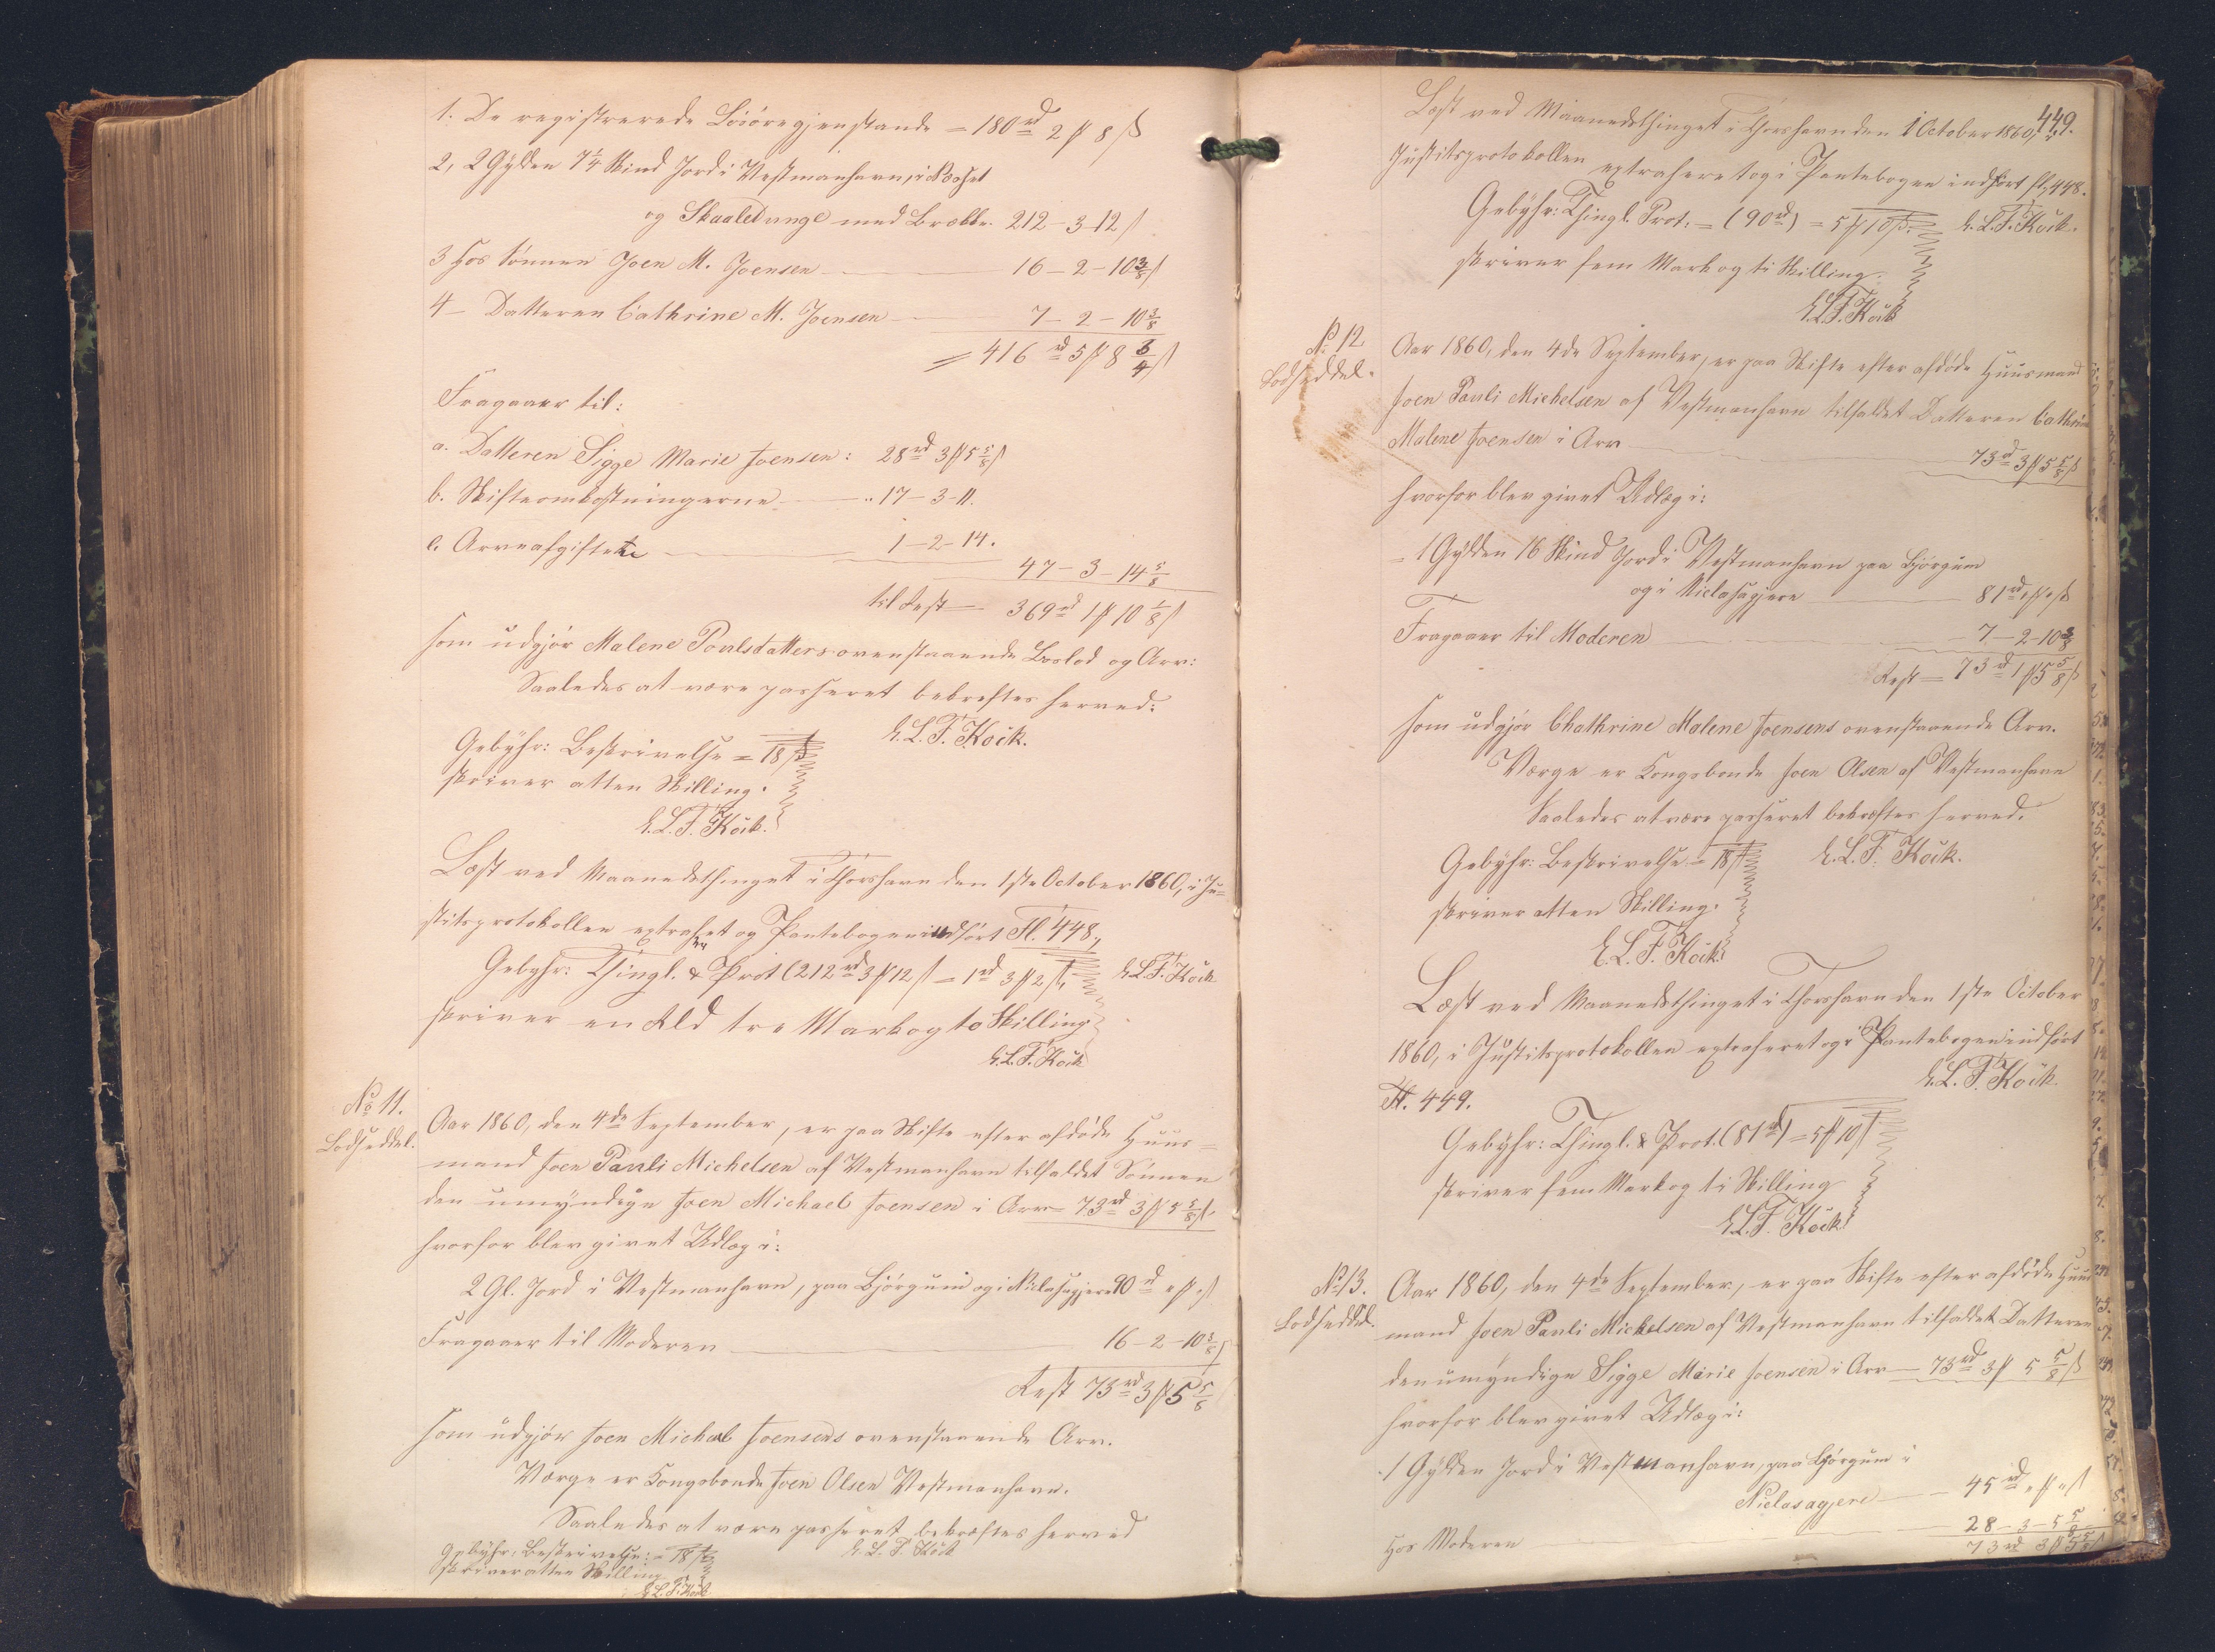 1. De registrerede Löiöregjenstande = 180 rd 2 ℳ 8 ß
2, 2 Gylden 7 1/4 Skind Jord i Vestmanhavn, i
og Skaaletunge med 212 - 3 - 12 ß
3 Hos Sönnen Joen M. Joensen 16 - 2 - 10 3/8 ß
4 - Datteren Cathrine M. Joensen 7 - 2 - 10 3/8
= 416 rd 5 ℳ 8 3/4 ß
Fragaaer til:
a. Datteren Sigge Marie Joensen: 28 rd 3 ℳ 5 5/8 ß
b. Skifteomkostningerne 17 - 3 - 11.
c. Arveafgiften 1 - 2 - 14.
47 - 3 - 14 5/8
til Rest 369 rd 1 ℳ 10 1/8 ß
som udgjör Malene Poulsdatters ovenstaaende Boslod og Arv:
Saaledes at være passeret bekreftes herved:
E. L. F. Köik.
Gebyhr: Beskrivelse = 18 ß
skriver atten Skilling.
E. L. F. Köik.
Læst ved Maanedsthinget i Thorshavn den 1ste October 1860, i Ju=
stitsprotokollen extraheret og Pantebogen indfört Fl. 448,
Gebyhr: Thingl. & Prot (212 rd 3 ℳ 12 ß = 1 rd 3 ℳ 2 ß, E. L. F. Köik
skriver en Rd tre Mark og to Skilling
E. L. F. Köik
No 11.
Lodseddel.
Aar 1860, den 4de September, er paa Skifte efter afdöde Huus=
mand Joen Pauli Michelsen af Vestmanhavn tilfaldet Sönnen
den umyndige Joen Michael Joensen i Arv 73 rd 3 ℳ 5 5/8 ß.
hvorfor blev givet Udlæg i:
2 Gl. Jord i Vestmanhavn, paa Björgum og i Niclasagjere 90 rd " ℳ " ß
Fragaaer til Moderen 16 - 2 - 10 3/8 ß
Rest 73 rd 3 ℳ 5 5/8
som udgjör Joen Michael Joensens ovenstaaende Arv.
Værge er Kongsbonde Joen Olsen Vestmanhavn.
Saaledes at være passeret bekræftes herved
E. L. F. Köik
Gebyhr. Beskrivelse: = 18 ß
skriver atten Skilling
E. L. F. Köik
449.
Læst ved Maanedsthinget i Thorshavn den 1 October 1860, i
Justitsprotokollen extraheret og i Pantebogen indfört fl. 448.
Gebyhr: Thingl. Prot. = (90 rd) = 5 ℳ 10 ß. E. L. F. Köik.
skriver fem Mark og ti Skilling.
E. L. F. Köik
No 12
Lodseddel.
Aar 1860, den 4de September, er paa Skifte efter afdöde Huusmand
Joen Pauli Michelsen af Vestmanhavn tilfaldet Datteren Cathrine
Malene Joensen i Arv 73 rd 3 ℳ 5 5/8 ß
hvorfor blev givet Udlæg i:
= 1 Gylden 16 Skind Jord i Vestmanhavn paa Björgum
og i Niclasagjere 81 rd " ℳ " ß
Fragaaer til Moderen 7 - 2 - 10 3/8
Rest = 73 rd 1 ℳ 5 5/8 ß
som udgjör Chathrine Malene Joensens ovenstaaende Arv.
Værge er Kongsbonde Joen Olsen af Vestmanhavn
Saaledes at være passeret bekræftes herved.
Gebyhr: Beskrivelse = 18 ß E. L. F. Köik.
skriver atten Skilling.
E. L. F. Köik
Læst ved Maanedsthinget i Thorshavn den 1ste October
1860, i Justitsprotokollen extraheret og i Pantebogen indfört
Fl. 449. E. L. F. Köik.
Gebyhr: Thingl. & Prot. (81 rd) = 5 ℳ 10 ß
skriver fem Mark og ti Skilling
E. L. F. Köik
No 13.
Lodseddel.
Aar 1860, den 4de September, er paa Skifte efter afdöde Huus
mand Joen Pauli Michelsen af Vestmanhavn tilfaldet Datteren
den umyndige Sigge Marie Joensen i Arv 73 rd 3 ℳ 5 5/8 ß
hvorfor blev givet Udlæg i:
1 Gylden Jord i Vestmanhavn, paa Björgum i
Niclasagjere 45 rd " ℳ " ß
Hos Moderen 28 - 3 - 5 5/8
73 rd 3 ℳ 5 5/8 ß